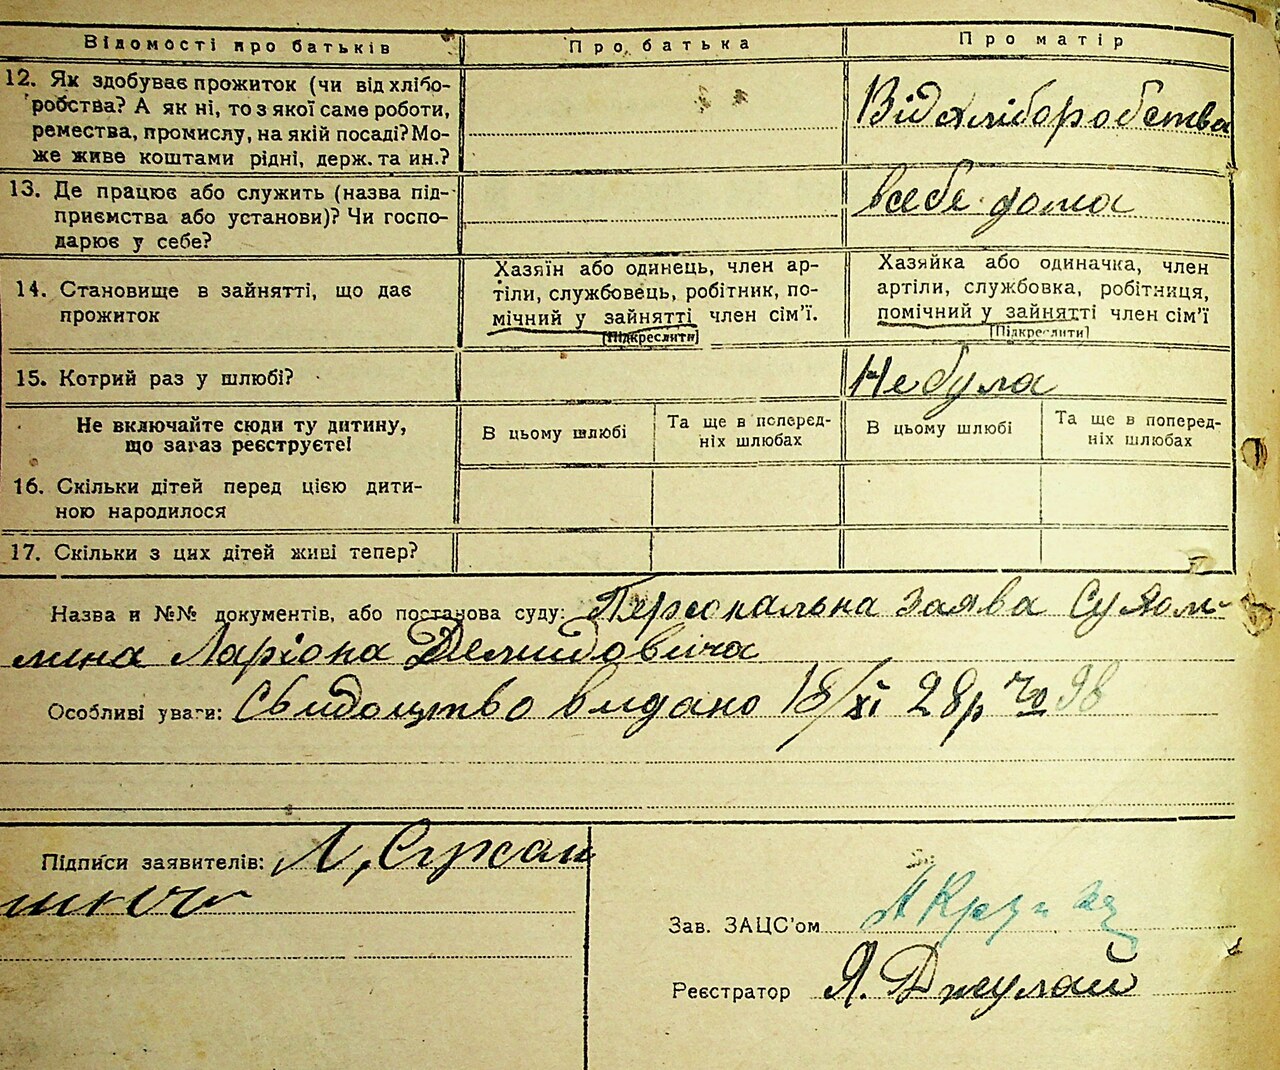 Відомості про батьків
Про батька
Про матір
12. Як здобуває прожиток (чи від хлібо-
робства? А як ні, то з якої саме роботи,
ремества, промислу, на якій посаді? Мо-
же живе коштами рідні, держ. та ин.?
Від хліборобства
13. Де працює або служить (назва під-
приємства або установи)? Чи госпо-
дарює у себе?
всебе дома
14. Становище в зайнятті, що дає
прожиток
Хазяїн або одинець, член ар-
тіли, службовець, робітник, по-
мічний у зайнятті член сім'ї.
[Підкреслити]
Хазяйка або одиначка, член
артіли, службовка, робітниця,
помічний у зайнятті член сім'ї
[Підкреслити]
15. Котрий раз у шлюбі?
Не була
Не включайте сюди ту дитину,
що зараз реєструєте!
В цьому шлюбі
Та ще в поперед-
ніх шлюбах
В цьому шлюбі
Та ще в поперед-
ніх шлюбах
16. Скільки дітей перед цією дити-
ною народилося
17. Скільки з цих дітей живі тепер?
Назва и №№ документів, або постанова суду: Персональна заява Сухом-
лина Ларіона Демидовича
Особливі уваги: Свидоцтво видано 18/XI 28р № 98
Підписи заявителів: Л,
Зав. ЗАЦС'ом
Реєстратор Я. Джулай